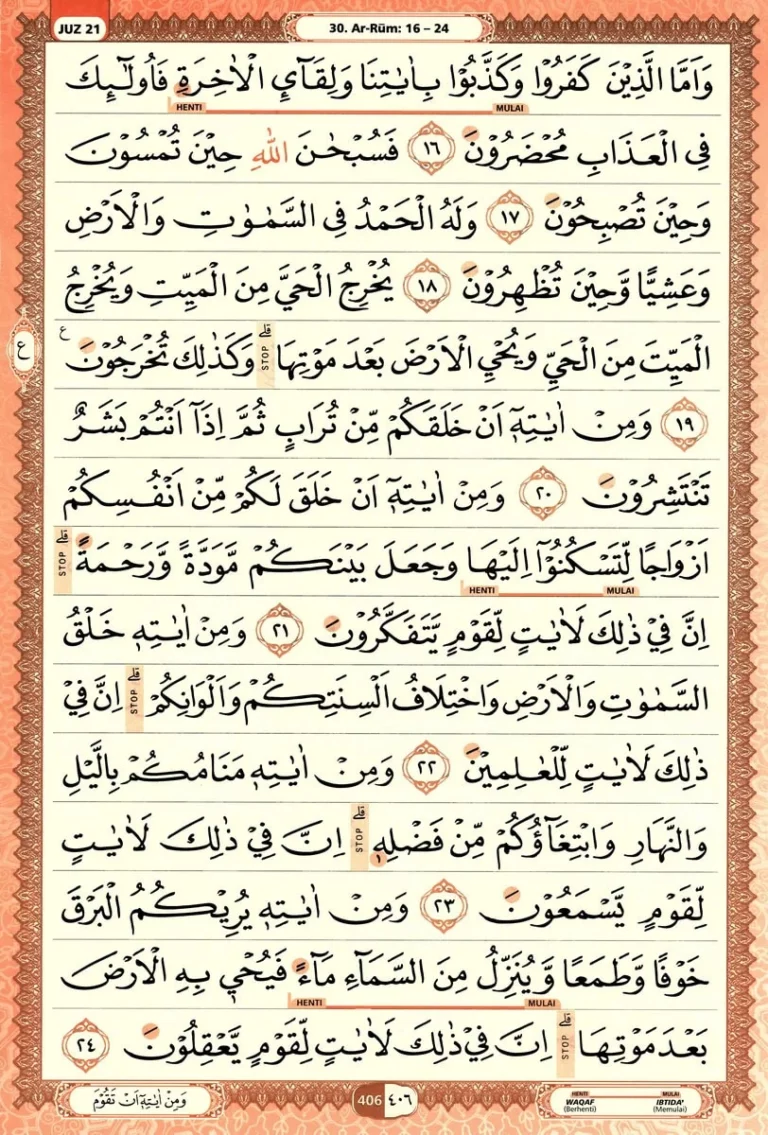 JUZ 21
30. Ar-Rūm: 16 – 24
وَاَمَّا الَّذِيْنَ كَفَرُوْا وَكَذَّبُوْا بِاٰيٰتِنَا وَلِقَاۤئِ الْاٰخِرَةِ فَاُولٰۤىِٕكَ
HENTI MULAI
فِى الْعَذَابِ مُحْضَرُوْنَ ۝١٦ فَسُبْحٰنَ اللّٰهِ حِيْنَ تُمْسُوْنَ
وَحِيْنَ تُصْبِحُوْنَ ۝١٧ وَلَهُ الْحَمْدُ فِى السَّمٰوٰتِ وَالْاَرْضِ
وَعَشِيًّا وَّحِيْنَ تُظْهِرُوْنَ ۝١٨ يُخْرِجُ الْحَيَّ مِنَ الْمَيِّتِ وَيُخْرِجُ
ع
الْمَيِّتَ مِنَ الْحَيِّ وَيُحْيِ الْاَرْضَ بَعْدَ مَوْتِهَا ۗ STOP وَكَذٰلِكَ تُخْرَجُوْنَ ࣖ
۝١٩ وَمِنْ اٰيٰتِهٖٓ اَنْ خَلَقَكُمْ مِّنْ تُرَابٍ ثُمَّ اِذَآ اَنْتُمْ بَشَرٌ
تَنْتَشِرُوْنَ ۝٢٠ وَمِنْ اٰيٰتِهٖٓ اَنْ خَلَقَ لَكُمْ مِّنْ اَنْفُسِكُمْ
اَزْوَاجًا لِّتَسْكُنُوْٓا اِلَيْهَا وَجَعَلَ بَيْنَكُمْ مَّوَدَّةً وَّرَحْمَةً ۗ STOP
HENTI MULAI
اِنَّ فِيْ ذٰلِكَ لَاٰيٰتٍ لِّقَوْمٍ يَّتَفَكَّرُوْنَ ۝٢١ وَمِنْ اٰيٰتِهٖ خَلْقُ
السَّمٰوٰتِ وَالْاَرْضِ وَاخْتِلَافُ اَلْسِنَتِكُمْ وَاَلْوَانِكُمْ ۗ STOP اِنَّ فِيْ
ذٰلِكَ لَاٰيٰتٍ لِّلْعٰلِمِيْنَ ۝٢٢ وَمِنْ اٰيٰتِهٖ مَنَامُكُمْ بِالَّيْلِ
وَالنَّهَارِ وَابْتِغَاۤؤُكُمْ مِّنْ فَضْلِهٖ ۗ STOP اِنَّ فِيْ ذٰلِكَ لَاٰيٰتٍ
لِّقَوْمٍ يَّسْمَعُوْنَ ۝٢٣ وَمِنْ اٰيٰتِهٖ يُرِيْكُمُ الْبَرْقَ
خَوْفًا وَّطَمَعًا وَّيُنَزِّلُ مِنَ السَّمَاۤءِ مَاۤءً فَيُحْيٖ بِهِ الْاَرْضَ
HENTI MULAI
بَعْدَ مَوْتِهَا ۗ STOP اِنَّ فِيْ ذٰلِكَ لَاٰيٰتٍ لِّقَوْمٍ يَّعْقِلُوْنَ ۝٢٤
وَمِنْ اٰيٰتِهٖٓ اَنْ تَقُوْمَ
406 ٤٠٦
HENTI MULAI
WAQAF IBTIDA'
(Berhenti) (Memulai)